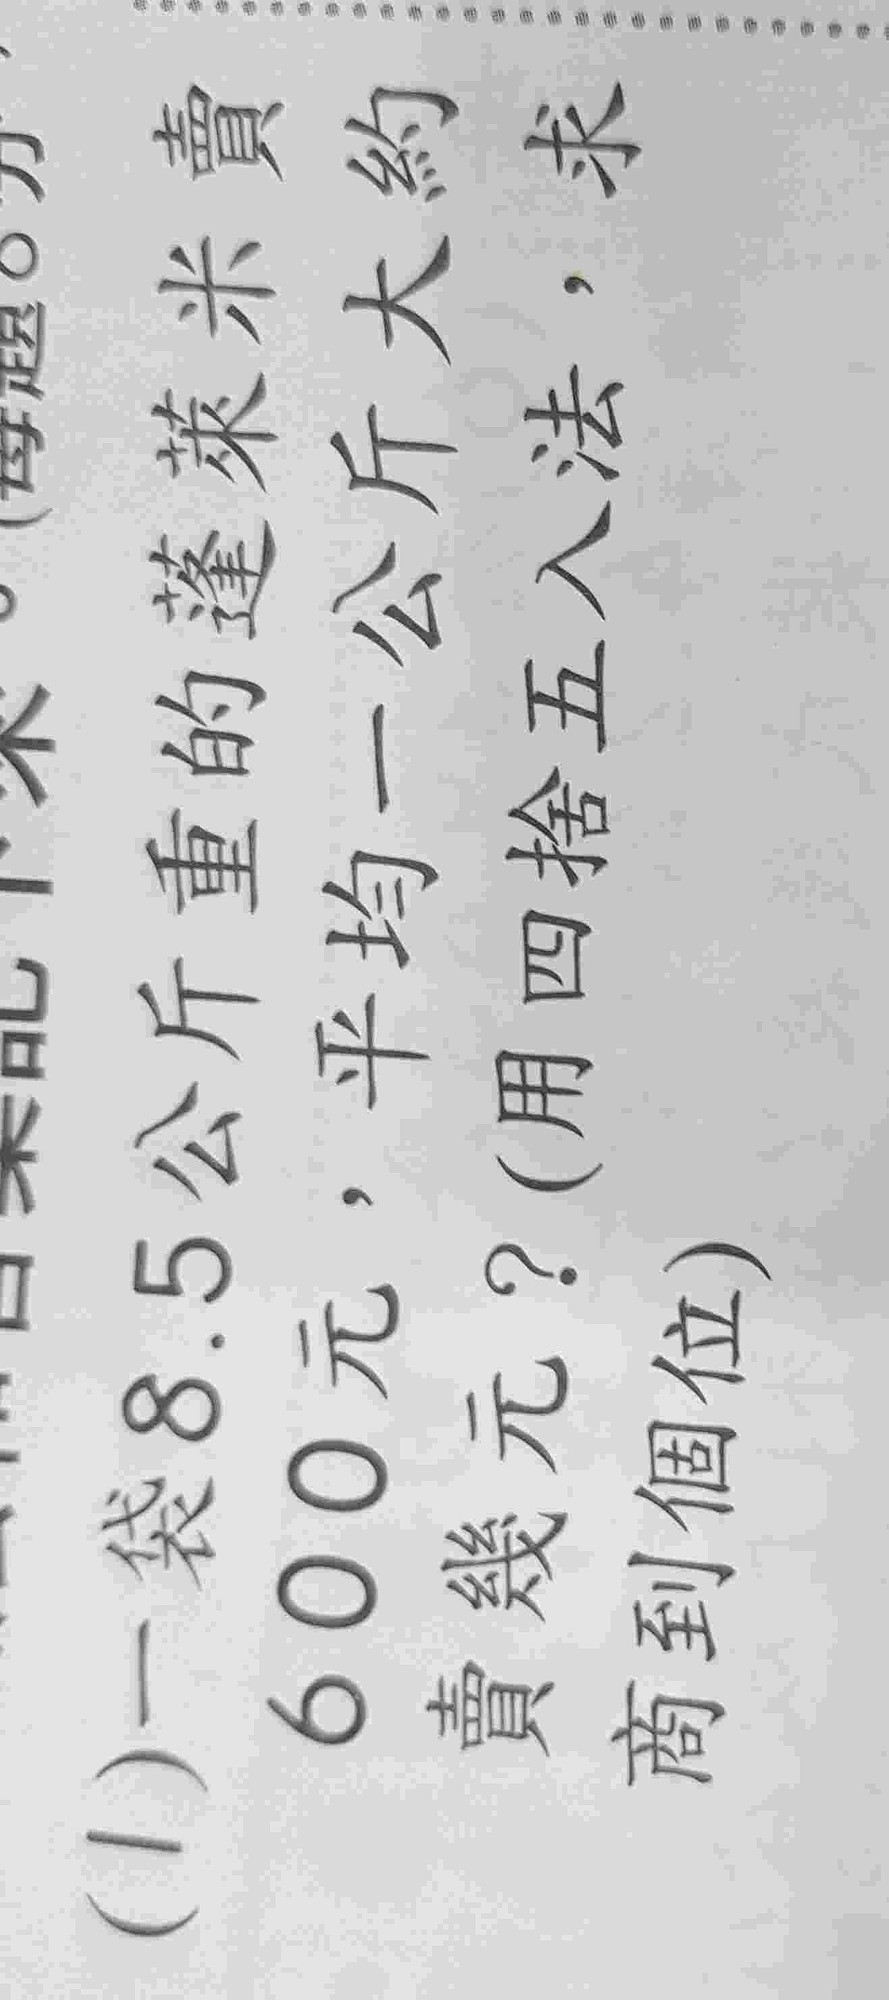 (每題8分)
(1)一袋8.5公斤重的蓬萊米賣
600元，平均一公斤大約
賣幾元？(用四捨五入法，求
商到個位)